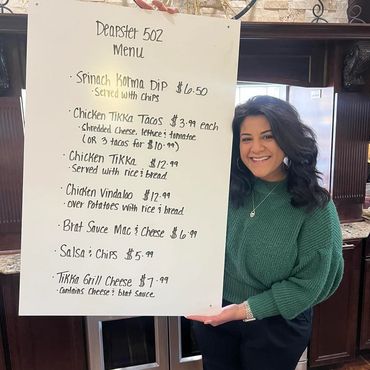 Deapster 502
Menu
· Spinach Korma Dip $6.50
· Served with chips
· Chicken Tikka Tacos $3.99 each
· Shredded Cheese, lettuce & tomatoe
(OR 3 tacos for $10.99)
· Chicken Tikka $12.99
· Served with rice & bread
· Chicken Vindaloo $12.99
· over Potatoes with rice & bread
· Brat Sauce Mac & Cheese $6.99
· Salsa & Chips $5.99
· Tikka Grill Cheese $7.99
· Contains Cheese & brat sauce